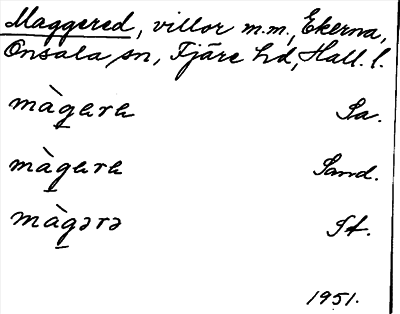 Maggered, villor m.m., Ekerna,
Onsala sn, Fjäre hd, Hall. l.
màgara Sa.
màgara Sand.
màgərə St.
1951.